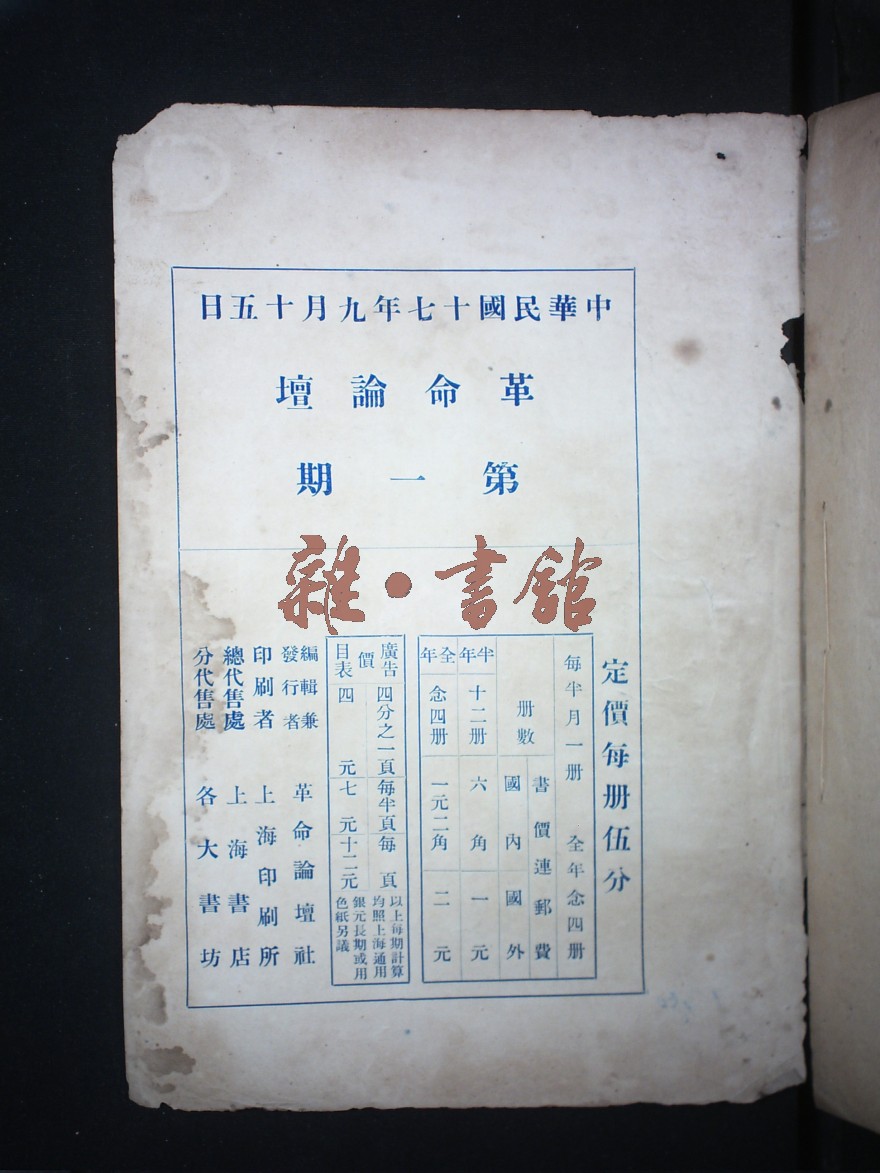 中華民國十七年九月十五日
革命論壇
第一期
雜•書館
定價每册伍分
每半月一册 全年念四册
册數 書價連郵費 國內 國外
半年 十二册 六角 一元
全年 念四册 一元二角 二元
廣告價目表
四分之一頁 每半頁 每頁
四元 七元 十二元
以上每期計算
均照上海通用
銀元長期或用
色紙另議
編輯兼發行者 革命論壇社
印刷者 上海印刷所
總代售處 上海書店
分代售處 各大書坊